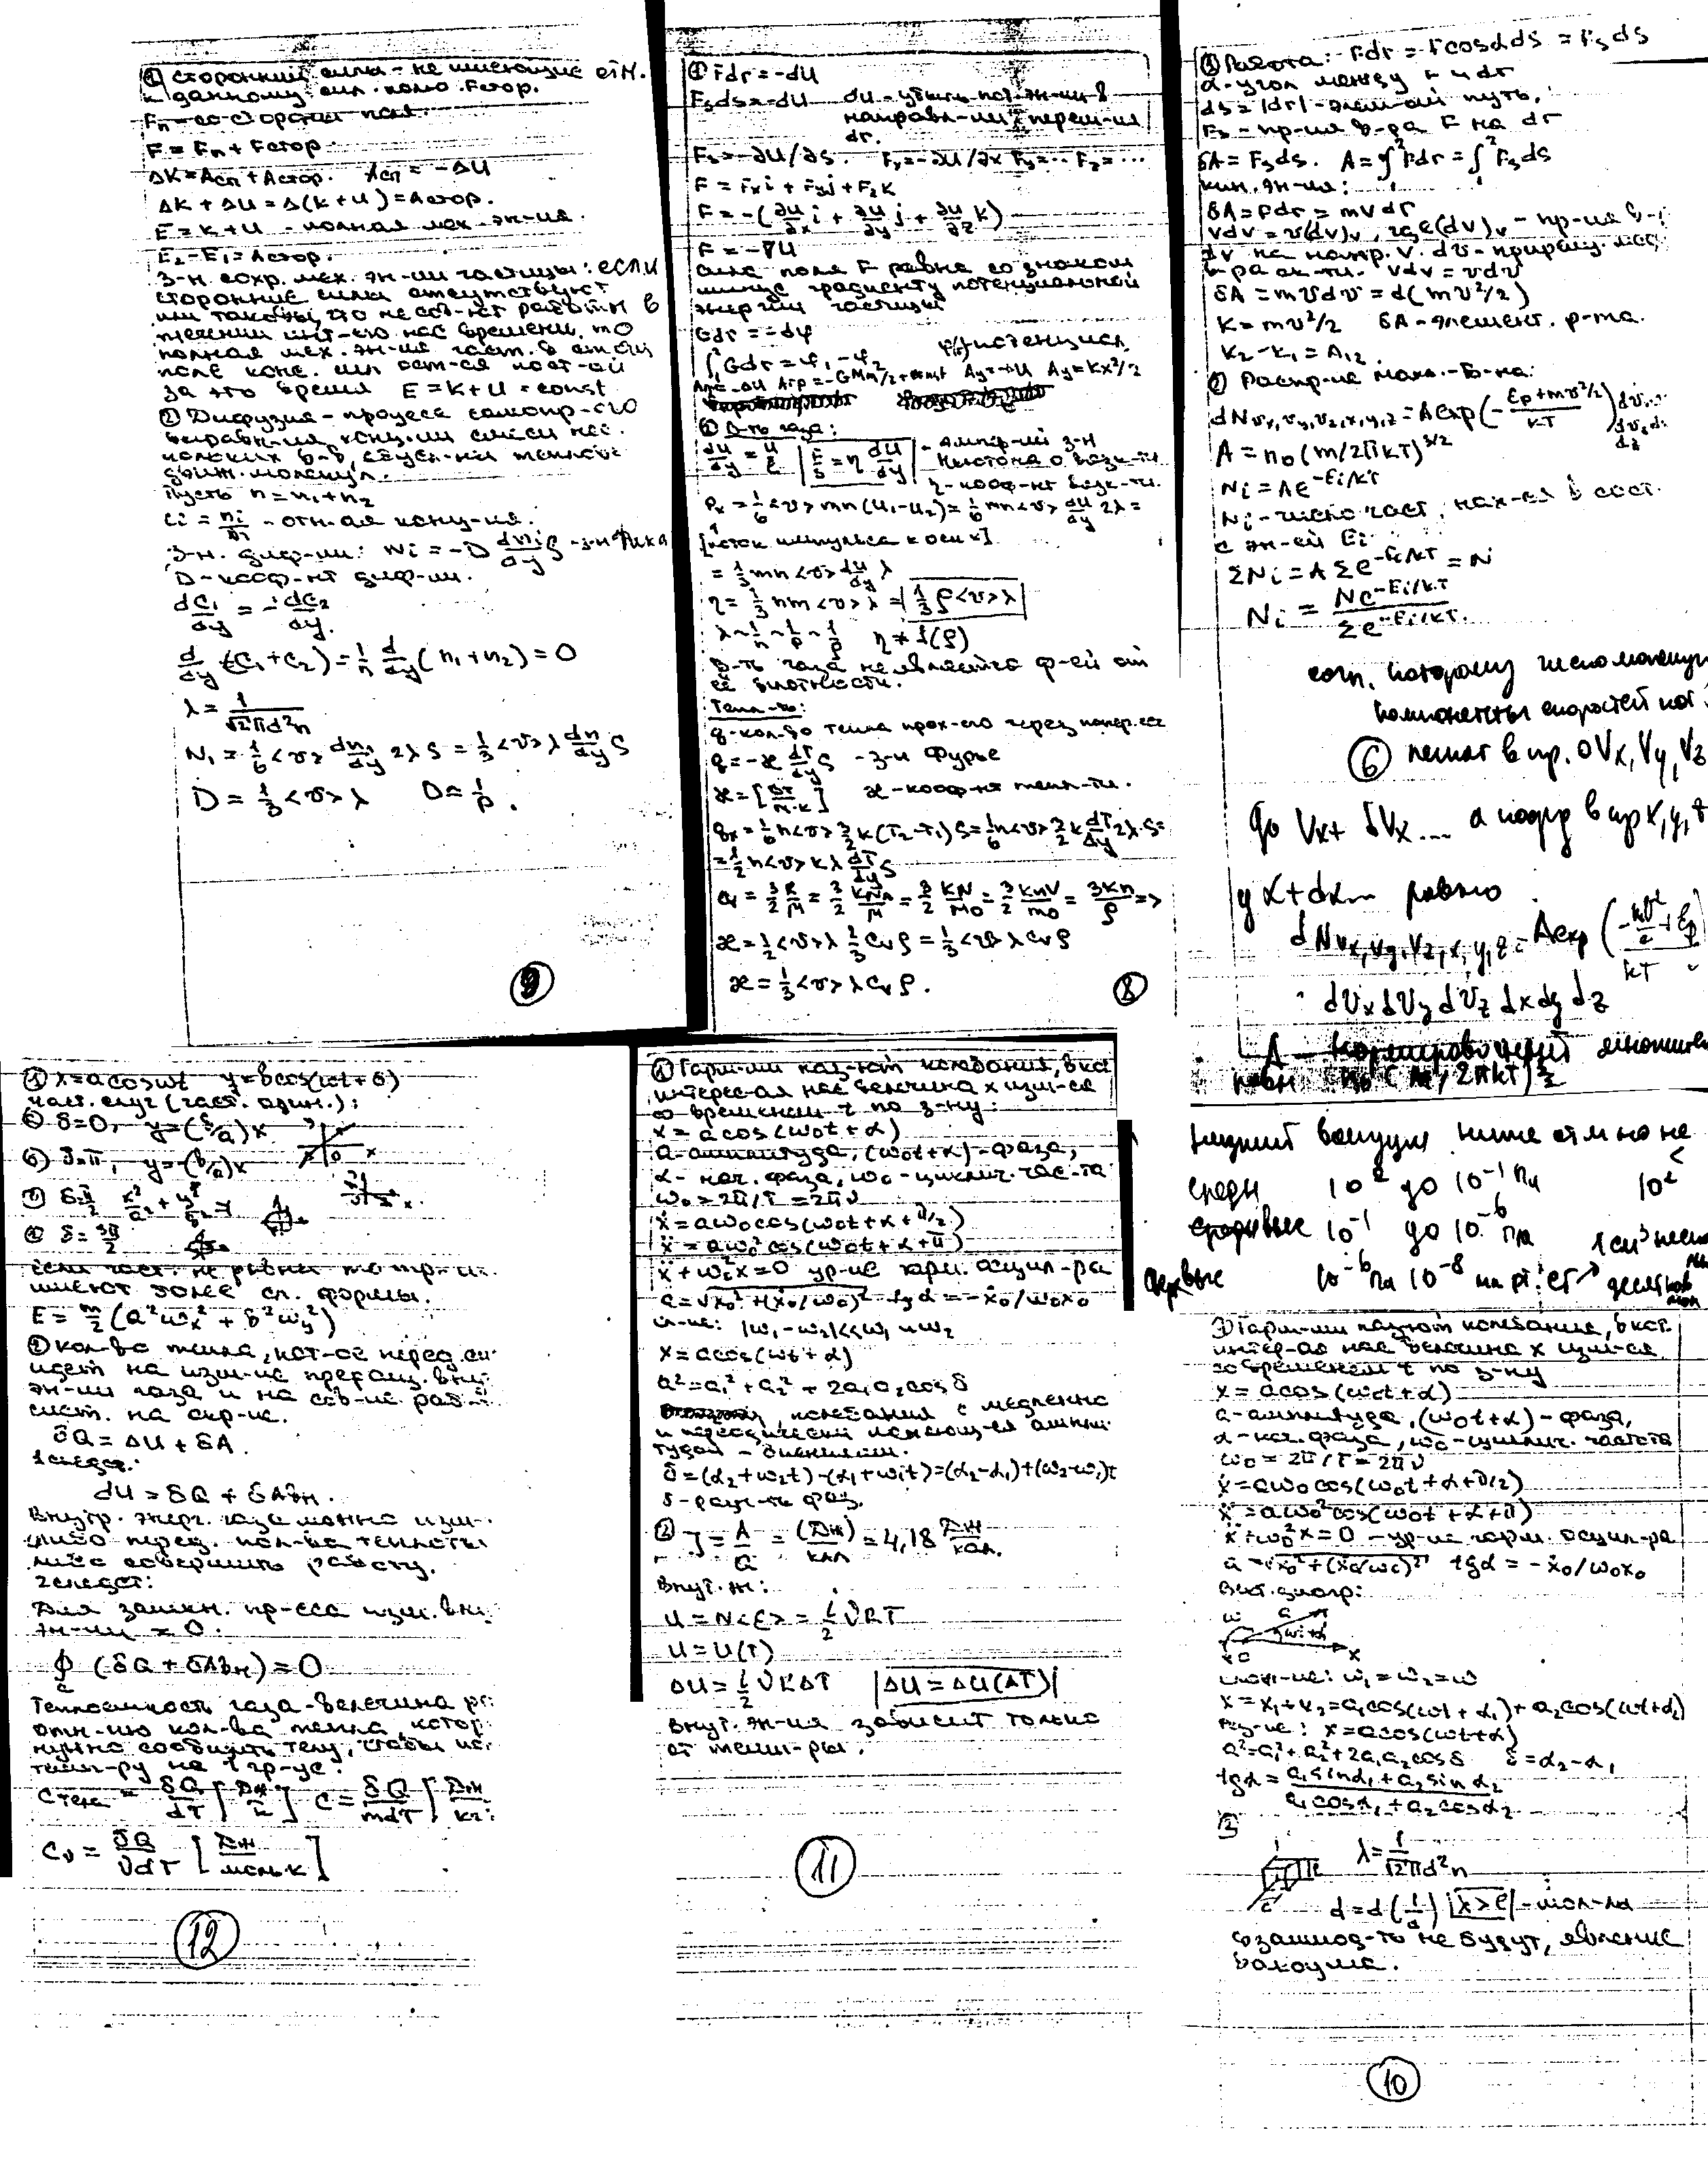 ① Сторонний силы - не имеющие отн.
к данному сил. полю. Fстор.
Fп - со стороны поля.
F = Fп + Fстор.
ΔK = Aсп + Aстор. Aсп = -ΔU
ΔK + ΔU = Δ(K+U) = Aстор.
E = K+U - полная мех. эн-ия.
E₂-E₁ = Aстор.
З-н. сохр. мех. эн-ии частицы: если
сторонние силы отсутствуют
или таковы, что не сов-ют работы в
течении инт-его нас времени, то
полная мех. эн-ия част. в стац
поле конс. сил ост-ся пост-ой
за это время E = K+U = const
② Диффузия - процесс самопр-ого
выравн-ия конц-ии смеси нес.
кольких в-в, обусл-ый теплов.
движ. молекул.
Пусть n = n₁+n₂
ci = ni/n - отн-ая конц-ия.
З-н. диф-ии: Ni = -D dni/dy S - з-н Фика
D - коэф-нт диф-ии.
dC₁/dy = - dC₂/dy.
d/dy (C₁+C₂) = 1/n d/dy (n₁+n₂) = 0
λ = 1/√2πd²n
N₁ = 1/6 <v> dn₁/dy 2λS = 1/3 <v> λ dn/dy S
D = 1/3 <v> λ D ≈ 1/p.
⑨
① Fdr = -dU
Fsds = -dU dU - убыль пот. эн-ии в
направл-ии перем-ия
dr.
Fs = -∂U/∂s. Fx = -∂U/∂x Fy = ... Fz = ...
F = Fxi + Fyj + Fzk
F = -(∂U/∂x i + ∂U/∂y j + ∂U/∂z k)
F = -∇U
Сила поля F равна со знаком
минус градиенту потенциальной
энергии частицы
Gdr = -dφ
∫Gdr = φ₁ - φ₂ φ(r) потенциал
② В-ть газа:
dU/dy = U/ℓ |F/S = η dU/dy| - эмпир-ий з-н
Ньютона о вязк-ти.
η - коэф-нт вязк-ти.
Px = 1/6 <v> mn (U₁-U₂) = 1/6 mn <v> dU/dy 2λ =
[поток импульса к оси x]
= 1/3 mn <v> dU/dy λ
η = 1/3 nm <v> λ = |1/3 ρ <v> λ|
λ ~ 1/n ~ 1/p ~ 1/ρ η ≠ f(ρ)
В-ть газа не является ф-ей от
её плотности.
Тепл-ть:
q - кол-во тепла прох-его через попер. сеч
q = -ϰ dT/dy S - з-н Фурье
ϰ = [Вт/м·к] ϰ - коэф-нт тепл-ти.
qx = 1/6 n <v> 3/2 k (T₂-T₁) S = 1/6 n <v> 3/2 k dT/dy 2λ·S =
= 1/2 n <v> kλ dT/dy S
Cv = 3/2 R/M = 3/2 kNA/M = 3/2 kN/M₀ = 3/2 knV/m₀ = 3kn/ρ =>
ϰ = 1/2 <v> λ 2/3 Cv ρ = 1/3 <v> λ Cv ρ
ϰ = 1/3 <v> λ Cv ρ.
⑧
① Работа: Fdr = Fcosα ds = Fs ds
α - угол между F и dr
ds = |dr| - элем-ый путь,
Fs - пр-ия в-ра F на dr
δA = Fsds. A = ∫Fdr = ∫Fsds
кин. эн-ия:
δA = Fdr = mvdr
vdv = v(dv)v, где (dv)v - пр-ия в-
dv на напр. v. dv - приращ. мод.
в-ра ск-ти. vdv = vdv
δA = mvdv = d(mv²/2)
K = mv²/2 δA - элемент. р-та.
K₂-K₁ = A₁₂.
② Распр-ие Макс.-Б-на:
dNvx,vy,vz,x,y,z = A exp(-(Ep+mv²/2)/kT)
A = n₀(m/2πkT)^3/2
Ni = Ae^-Ei/kT
Ni - число част, нах-ся в сост.
с эн-ей Ei
ΣNi = A Σe^-Ei/kT = N
Ni = Ne^-Ei/kT / Σe^-Ei/kT.
согл. которому число молекул
компоненты скоростей кот.
⑥ лежат в пр. от Vx, Vy, Vz
до Vx + dVx ... а коорд в пр x, y, z
y x+dx... равно
dNvx,vy,vz,x,y,z = A exp (-mv²/2 + Ep / kT)
· dVx dVy dVz dx dy dz
A - нормировочный множитель
равн
① x = a cos ωt y = b cos(ωt+δ)
част. случ (част. один.):
δ=0, y = (b/a)x
δ=π, y = -(b/a)x
δ=π/2 x²/a² + y²/b² = 1
δ = 3π/2
если част. не равны то тр-ии
имеют более сл. формы.
E = m/2 (a²ωx² + b²ωy²)
② Кол-во тепла, кот-ое перед. си
идет на изм-ие прращ. вну
эн-ии газа и на сов-ие раб-
сист. на окр-ие.
δQ = ΔU + δA.
1 следст.
dU = δQ + δAвн.
Внутр. энерг. газа можно изм.
либо перед. кол-ва теплоты
либо совершить работу.
2 следст:
Для замкн. пр-сса изм. вну
эн-ии = 0.
∮ (δQ + δAвн) = 0
Теплоемкость газа - величина ра
отн-ию кол-ва тепла, котор
нужно сообщить телу, чтобы из
темп-ру на 1 гр-ус.
Cтела = δQ/dT [Дж/к] C = δQ/mdT [Дж/кг
Cν = δQ/νdT [Дж/моль·к]
⑫
① Гарм-ми наз-ют колебания, в кот
интерес-ая нас величина x изм-ся
со временем t по з-ну:
x = a cos(ω₀t+α)
a - амплитуда, (ω₀t+α) - фаза,
α - нач. фаза, ω₀ - циклич. час-та
ω₀ = 2π/T = 2πν
ẋ = aω₀cos(ω₀t+α+π/2)
ẍ = aω₀²cos(ω₀t+α+π)
ẍ + ω₀²x = 0 ур-ие гарм. осцил-ра
a = √x₀²+(ẋ₀/ω₀)² tgα = -ẋ₀/ω₀x₀
сл-ие: |ω₁-ω₂|<<ω₁ и ω₂
x = a cos(ωt+α)
a² = a₁²+a₂² + 2a₁a₂cosδ
колебания с медленно
и периодически меняющ-ся ампли
тудой - биениями.
δ = (α₂+ω₂t)-(α₁+ω₁t) = (α₂-α₁)+(ω₂-ω₁)t
δ - разн-ть фаз.
② J = A/Q = (Дж)/кал = 4,18 Дж/кал.
Внут. эн:
U = N<ε> = i/2 νRT
U = U(T)
ΔU = i/2 νRΔT |ΔU = ΔU(ΔT)|
Внут. эн-ия зависит только
от темп-ры.
⑪
низший вакуум ниже атм но не <
средн 10² до 10⁻¹ Па 10²
10⁻¹ до 10⁻⁶ Па 1 см³
10⁻⁶ Па 10⁻⁸ мм рт. ст
① Гарм-ми назыют колебание, в кот.
интер-ая нас величина x изм-ся
со временем t по з-ну
x = a cos(ω₀t+α)
a - амплитуда, (ω₀t+α) - фаза,
α - нач. фаза, ω₀ - циклич. частота
ω₀ = 2π/T = 2πν
ẋ = aω₀cos(ω₀t+α+π/2)
ẍ = aω₀²cos(ω₀t+α+π)
ẍ+ω₀²x = 0 - ур-ие гарм. осцил-ра
a = √x₀²+(ẋ₀/ω₀)² tgα = -ẋ₀/ω₀x₀
Вект. диагр:
слож-ие: ω₁ = ω₂ = ω
x = x₁+x₂ = a₁cos(ωt+α₁) + a₂cos(ωt+α₂)
рез-ие: x = a cos(ωt+α)
a² = a₁²+a₂²+2a₁a₂cosδ δ = α₂-α₁
tgα = a₁sinα₁+a₂sinα₂ / a₁cosα₁+a₂cosα₂
②
λ = 1/√2πd²n
d = d(1/d) |λ>ℓ| - мол-лы
взаимод-ть не будут, явление
вакуума.
⑩